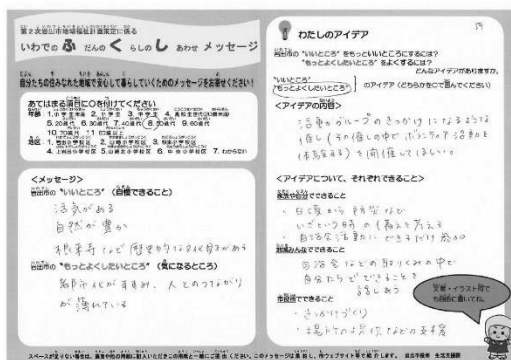 第2次岩出市地域福祉計画策定に係る
いわでの ふ だんの く らしの し あわせ メッセージ
自分たちの住みなれた地域で安心して暮らしていくためのメッセージをお寄せください！
あてはまる項目に○を付けてください
年齢
5.20歳代 6.30歳代 7.40歳代 8.50歳代 9.60歳代
10.70歳代 11.80歳以上
地区
4.上岩出小学校区 5.山崎北小学校区 6.中央小学校区 7.わからない
＜メッセージ＞
岩出市の "いいところ" （自慢できること）
活気がある
自然が豊か
根来寺など歴史的な文化財がある
岩出市の "もっとよくしたいところ" （気になるところ）
都市化がすすみ、人とのつながり
が薄れている
59
わたしのアイデア
岩出市の "いいところ" をもっといいところにするには？
"もっとよくしたいところ" をよくするには？
どんなアイデアがありますか。
"いいところ"
"もっとよくしたいところ" のアイデア（どちらかを○で囲んでください）
＜アイデアの内容＞
活動グループのきっかけになるような
催し（その催しの中でボランティア活動を
体験する）を開催してほしい。
＜アイデアについて、それぞれできること＞
家族や自分でできること
・日頃から防災など
いざという時の備えを考える
・自治会活動にできるだけ参加
地域みんなでできること
自治会などの取りくみの中で
自分たちでできることを
話しあう
市役所でできること
・きっかけづくり
・場所の提供などの支援
文章・イラスト何で
も自由に書いてね。
スペースが足りない場合は、裏面や他の用紙に記入いただきこの用紙と一緒にご提出ください。このメッセージは集約し、市ウェブサイト等で紹介します。 岩出市役所 生活支援課